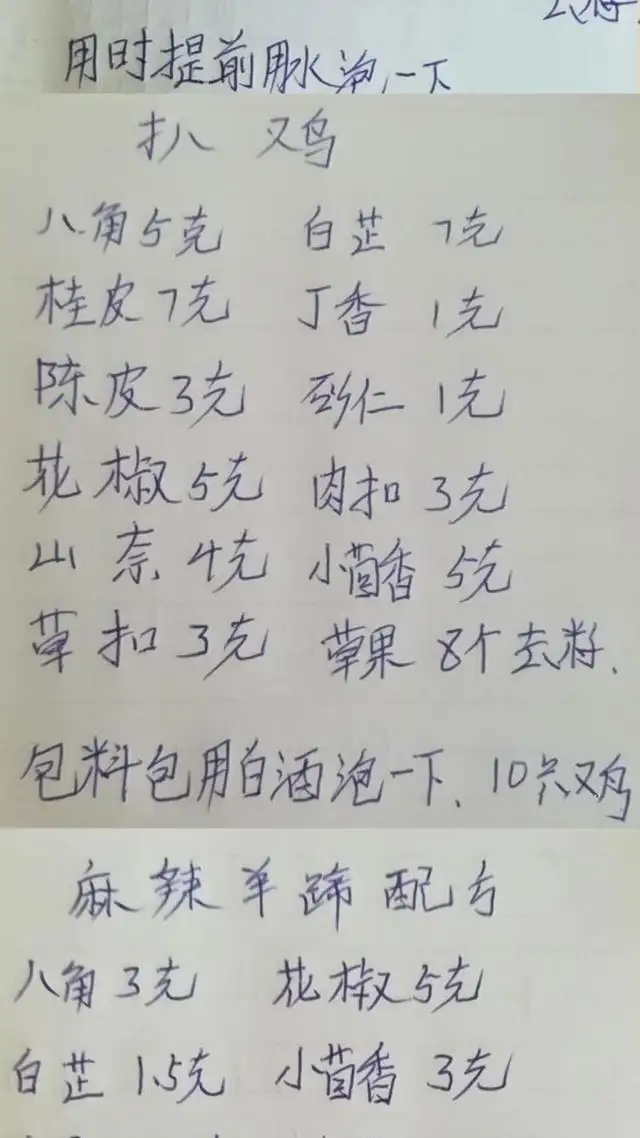 用时提前用水泡一下
扒 鸡
八角5克 白芷 7克
桂皮7克 丁香 1克
陈皮3克 砂仁 1克
花椒5克 肉扣 3克
山奈4克 小茴香 5克
草扣3克 草果 8个去籽.
包料包用白酒泡一下、10只鸡
麻辣羊蹄配方
八角3克 花椒5克
白芷1.5克 小茴香 3克